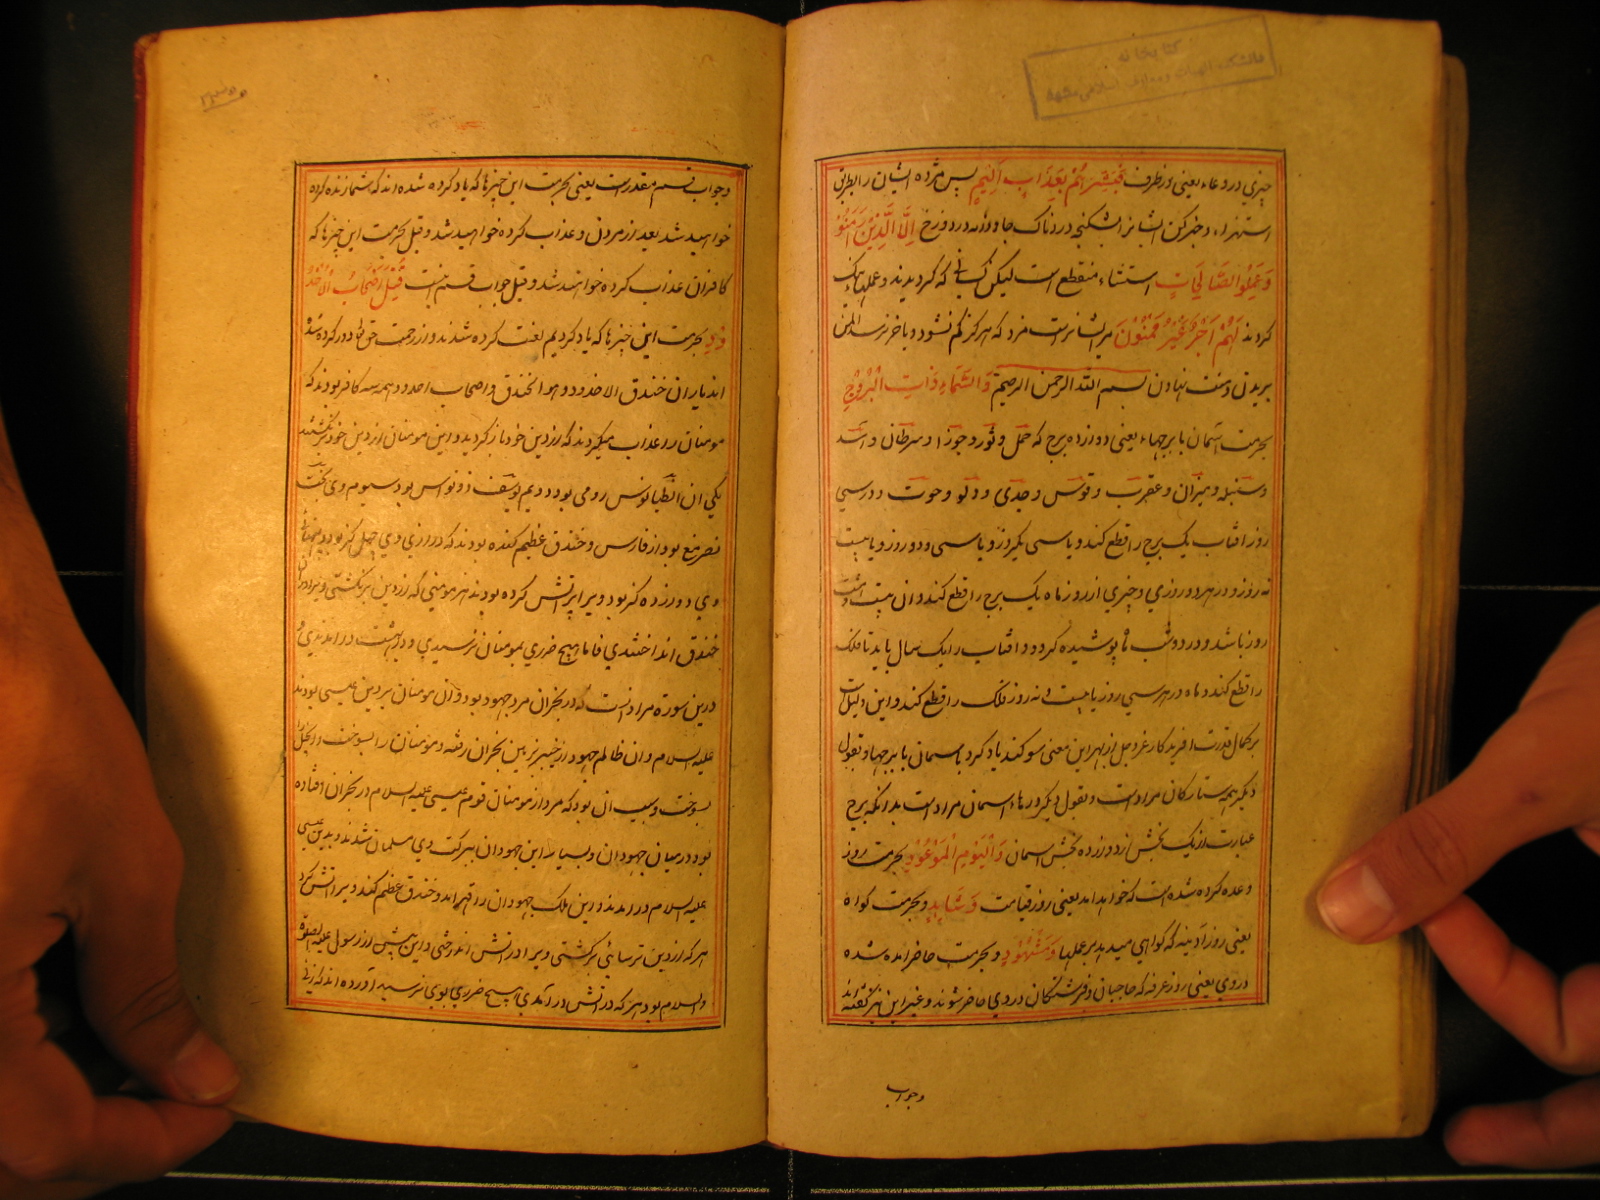 کتابخانه
دانشکده الهیات و معارف اسلامی مشهد
چیزی در وعاء یعنی در ظرف فَبَشِّرْهُمْ بِعَذَابٍ اَلِیمٍ پس مژده ایشان را بطریق
استهزاء و خبر کن ایشانرا بشکنجه دردناک جاودانه در دوزخ اِلَّا الَّذِینَ آمَنُوا
وَعَمِلُوا الصَّالِحَاتِ استثناء منقطع است لیکن کسانی که گرویدند و عملهای نیک
کردند لَهُمْ اَجْرٌ غَیْرُ مَمْنُونٍ مر ایشانراست مزد که هرگز کم نشود و باخر نرسد
بریدن و منت نهادن بسم الله الرحمن الرحیم وَالسَّمَاءِ ذَاتِ الْبُرُوجِ
بحرمت آسمان با برجهاء یعنی دوازده برج که حمل و ثور و جوزا و سرطان و اسد
و سنبله و میزان و عقرب و قوس و جدی و دلو و حوت و در سی
روز افتاب یک برج را قطع کند و یا سی یکروز و یا سی و دو روز و یا بیست
نه روز و در هر دو روزی و چیزی از روز ماه یک برج را قطع کند و ان بیست و هشت
روز باشد و در دو شب ماه پوشیده گردد و افتاب را یک سال باید تا فلک
را قطع کند و ماه در هر سی روز یا بیست و نه روز فلک را قطع کند و این دلیل است
بر کمال قدرت افریدکار عز و جل از بهر این معنی سوکند یاد کرد باسمان با برجها و بقول
دیگر همه ستارکان مراد است و بقول دیگر درهاء اسمان مراد است بدانکه برج
عبارت از یک بخش از دوازده بخش اسمان وَالْیَوْمِ الْمَوْعُودِ بحرمت روز
وعده کرده شده است که خواهد امد یعنی روز قیامت وَشَاهِدٍ و بحرمت کواه
یعنی روز آدینه که کواهی میدهد بر عملها وَمَشْهُودٍ و بحرمت حاضر امده شده
در وی یعنی روز عرفه که حاجیان و فرشتکان در وی حاضر شوند و غیر این نیز کفته اند
وجواب
وجواب قسم مقدر است یعنی بحرمت این چیزها که یاد کرده شده اند که شما زنده کرده
خواهید شد بعد از مردن و عذاب کرده خواهید شد و قیل بحرمت این چیزها که
کافران عذاب کرده خواهند شد و قیل جواب قسم اینست قُتِلَ اَصْحَابُ الْاُخْدُ
ودِ بحرمت این چیزها که یاد کردیم لعنت کرده شدند و از رحمت حق تعالی دور کرده شده
اند یاران خندق الاخدود هو الخندق و اصحاب اخدود هر سه کافر بودند که
مومنان را عذاب میکردند که از دین خود باز کردید و این مومنان از دین خود برنکشتند
یکی ان انطیانوس رومی بود و دیم یوسف ذو نواس بود سیوم وی بخت
نصر بود از فارس و خندق عظیم کنده بودند که درازی وی چهل کز بود و پهناء
وی دوازده کز بود و پر از آتش کرده بودند هر مومنی که از دین برنکشتی ویرا در ان
خندق انداختندی فاما هیچ ضرری بمومنان نرسیدی و در بهشت در امدندی
درین سوره مراد انست که در نجران مرد جهود بود و ان مومنان بر دین عیسی بودند
علیه السلام و ان ظالم جهود از خیبر بزمین نجران رفته و مومنان را بسوخت و انجیل را
بسوخت و سبب ان بود که مرد از مومنان قوم عیسی علیه السلام در نجران افتاده
بود در میان جهودان و بسیار این جهودان ببرکت وی مسلمان شدند و بدین عیسی
علیه السلام در امدند و این ملک جهودان را و خندق عظیم کند و پر اتش کرد
هر که از دین ترسائی برنکشتی ویرا در اتش انداختی و این پیش از رسول علیه الصلوة
والسلام بود هر که در اتش در آمدی هیچ ضرری بوی نرسید آورده اند که زنی